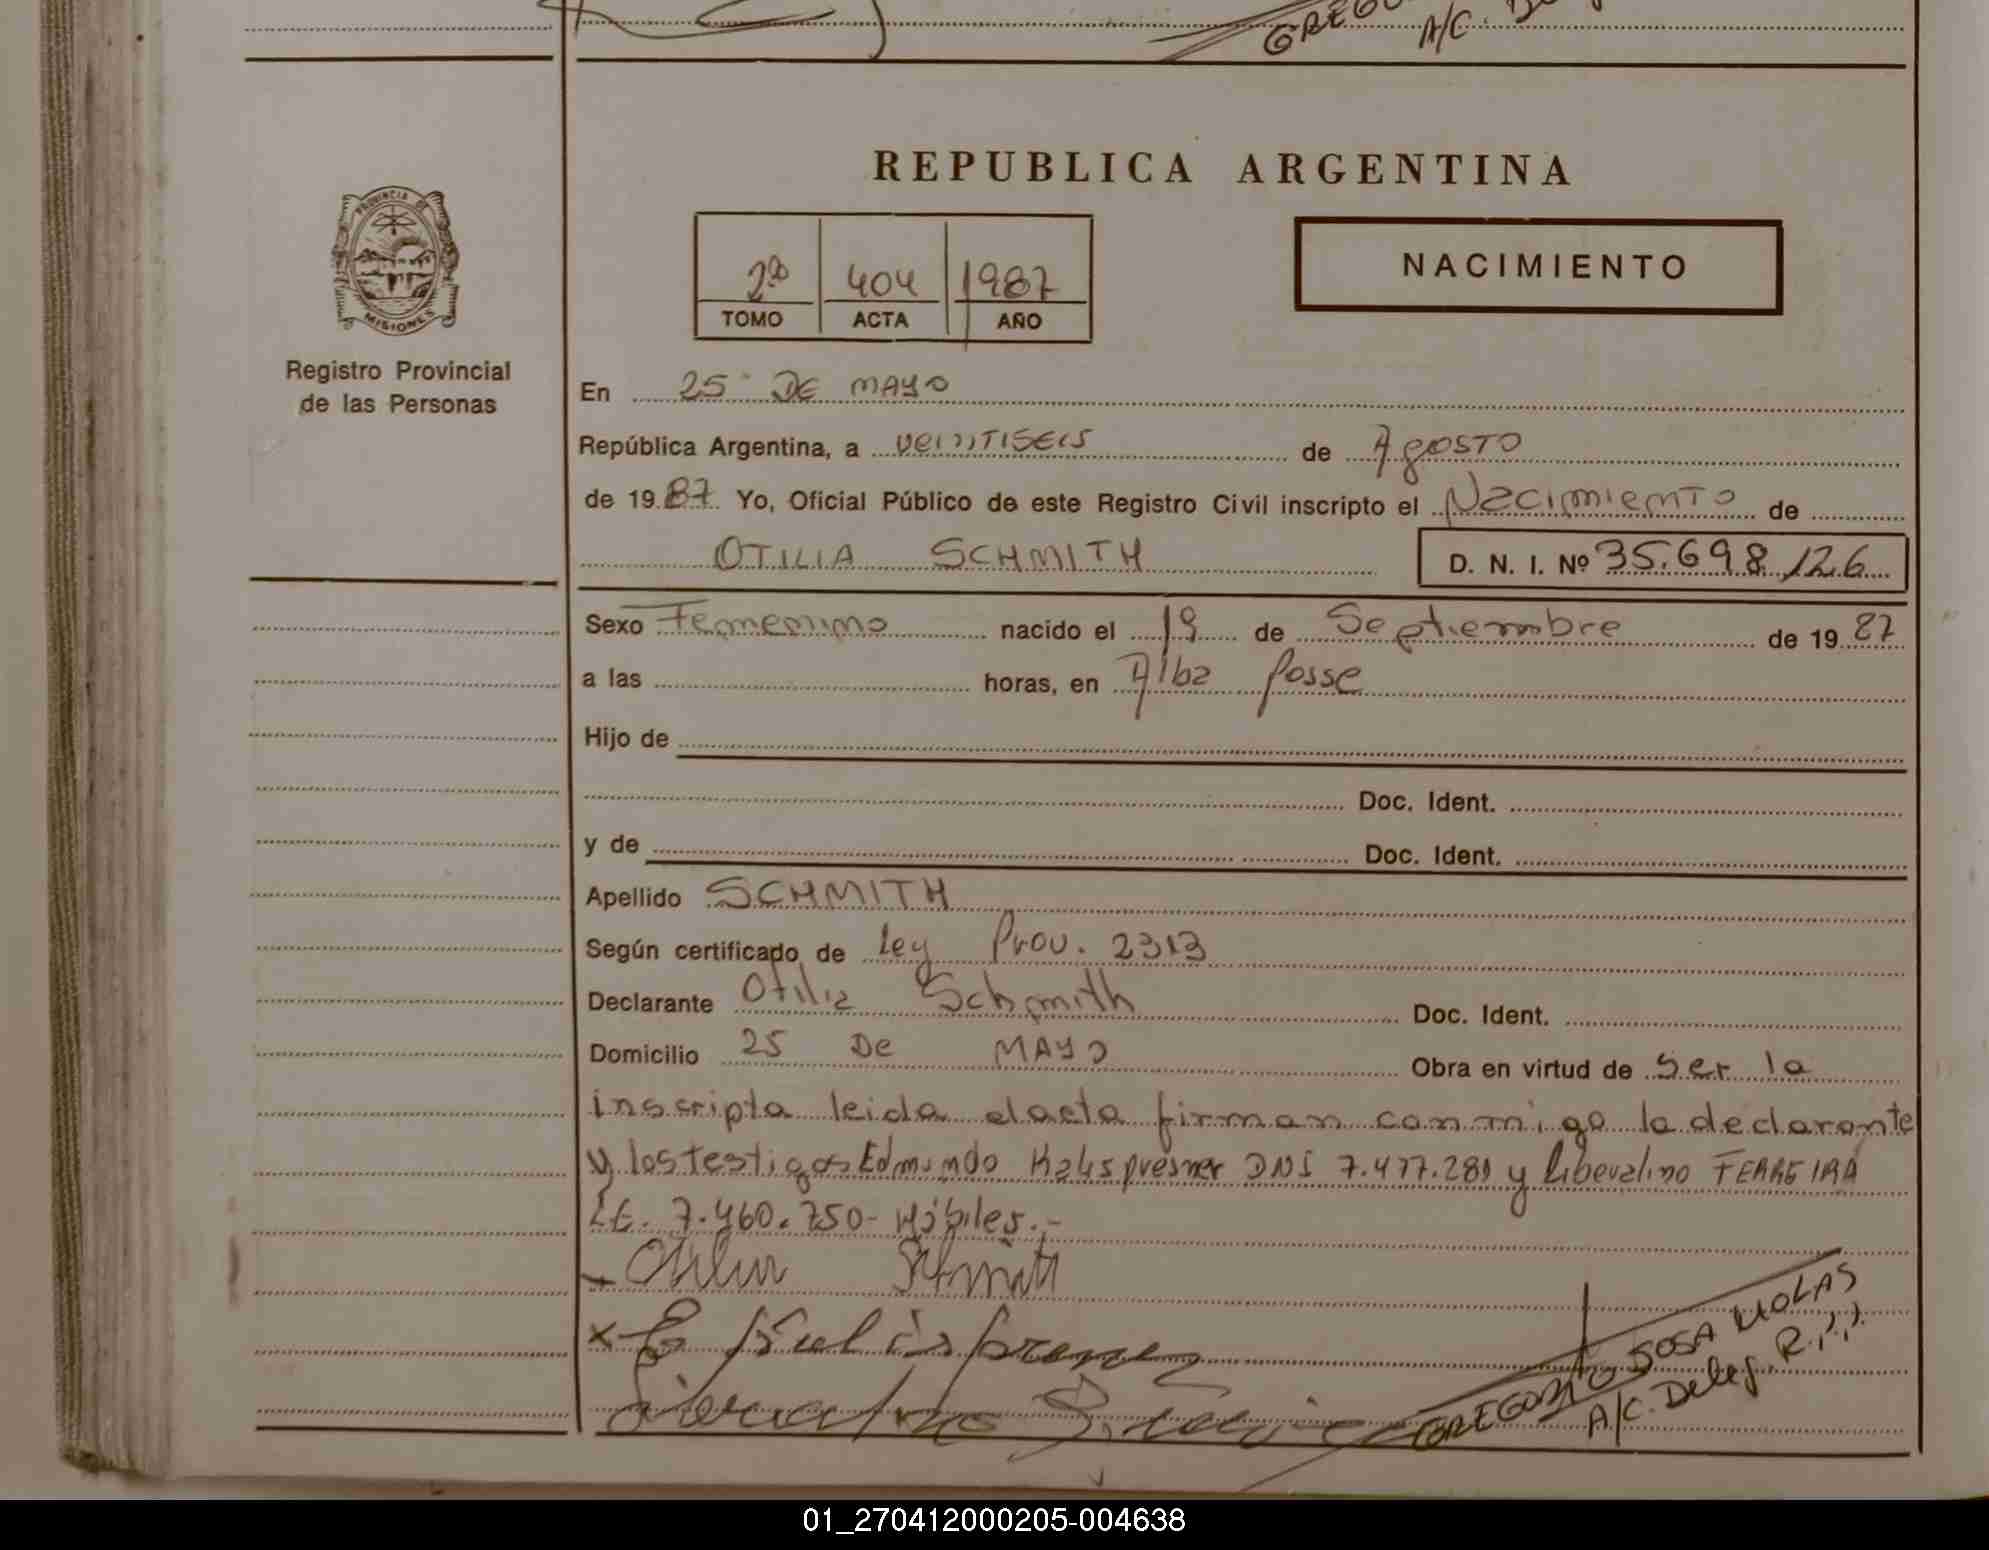 GREGO
A/C.
PROVINCIA DE
MISIONES
Registro Provincial
de las Personas
REPUBLICA ARGENTINA
2do 404 1987
TOMO ACTA AÑO
NACIMIENTO
En 25 DE MAYO
República Argentina, a veintiseis de Agosto
de 1987 Yo, Oficial Público de este Registro Civil inscripto el Nacimiento de
OTILIA SCHMITH D. N. I. Nº 35.698.126
Sexo Femenino nacido el 19 de Septiembre de 1987
a las horas, en Alba Posse
Hijo de
Doc. Ident.
y de Doc. Ident.
Apellido SCHMITH
Según certificado de Ley Prov. 2313
Declarante Otilia Schmith Doc. Ident.
Domicilio 25 De MAYO Obra en virtud de ser la
inscripta leida elacta firman conmigo la declarante
y los testigos Edmundo Kalispresner DNI 7.477.281 y Liberalino FERREIRA
LE. 7.460.750- Hábiles.-
Otilia Schmith
x E
GREGORIO SOSA MOLAS
A/C. Deleg. R.P.P.
01_270412000205-004638